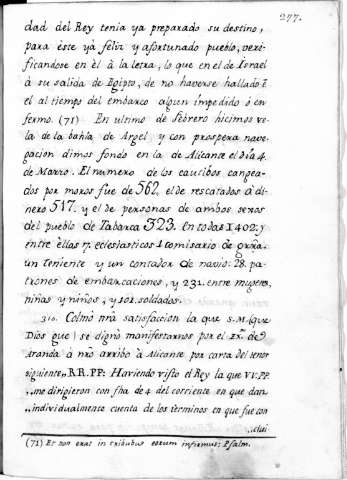 277.
dad del Rey tenia ya preparado su destino,
para este yà feliz y afortunado pueblo, veri-
ficandose en èl à la letra, lo que en el de Israel
à su salida de Egipto, de no haverse hallado ē
el al tiempo del embarco algun impedido ò en
fermo. (71) En ultimo de febrero hicimos ve-
la de la bahia de Argel y con prospera nave-
gacion dimos fondo en la de Alicante el dia 4.
de Marzo. El numero de los cautibos cangea-
dos por moros fue de 562, el de rescatados à di-
nero 517. y el de personas de ambos sexos
del pueblo de Tabarca 323. En todas 1402. y
entre ellas 17. eclesiasticos 1 comisario de grra.
un teniente y un contador de navio: 28. pa-
trones de embarcaciones, y 231. entre mugeres,
niñas y niños, y 102. soldados.
310. Colmò nrã satisfaccion la que S.M. (que
Dios gue) se dignò manifestarnos por el Ex.mo de
Aranda à nrõ arribo à Alicante por carta del tenor
siguiente „ RR. PP: Haviendo visto el Rey la que VV. PP.
„ me dirigieron con fha de 4 del corriente en que dan
„ individualmente cuenta de los terminos en que fue con
„clui
(71) Et non erat in tribubus eorum infirmus: Psalm.